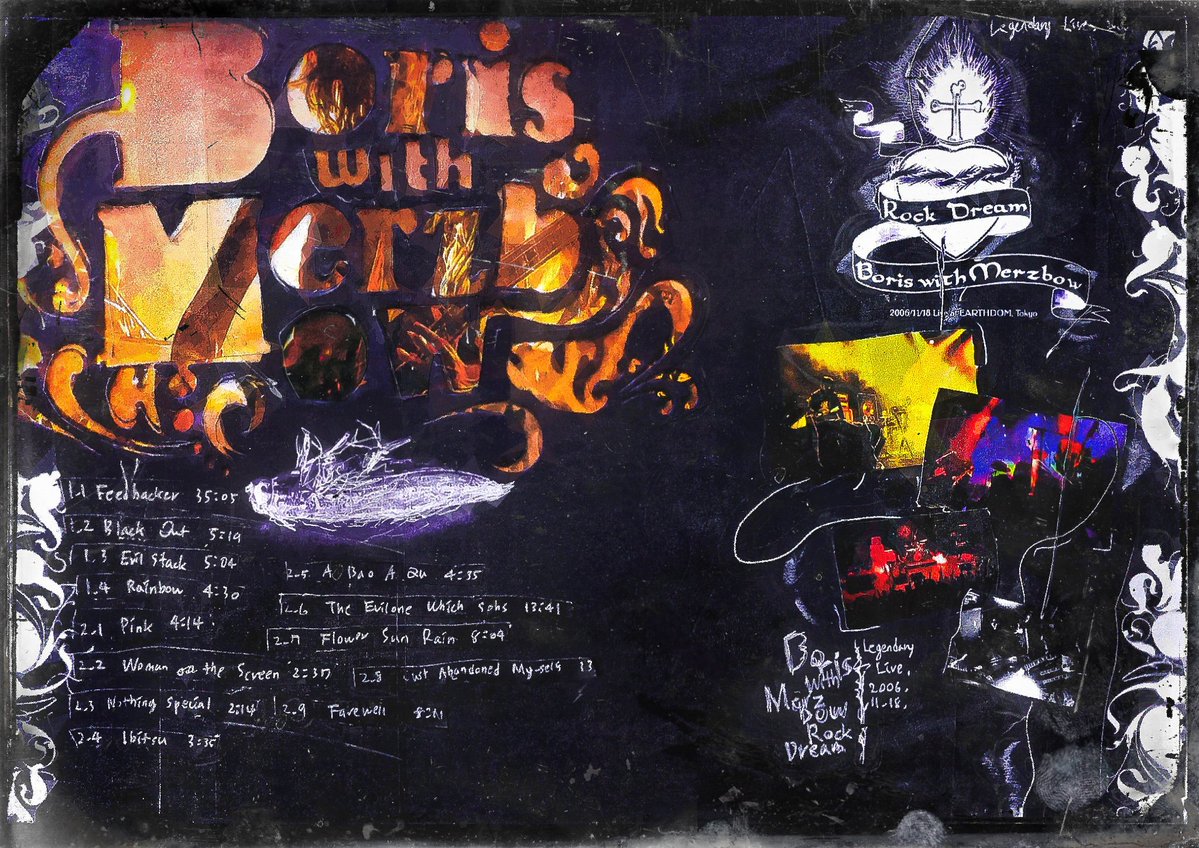 Boris
with
Merzb
ow
1.1 Feedbacker 35:05
1.2 Black Out 5:19
1.3 Evil Stack 5:04
1.4 Rainbow 4:30
2.1 Pink 4:14
2.2 Woman on the Screen 2:37
2.3 Nothing Special 2:14
2.4 Ibitsu 3:35
2.5 A Bao A Qu 4:35
2.6 The Evilone Which Sobs 13:41
2.7 Flower Sun Rain 8:04
2.8 Just Abandoned My-self 13
2.9 Farewell
Legendary Live
Rock Dream
Boris with Merzbow
2006/11/18 Live at EARTHDOM, Tokyo
Boris
with
Marz
bow
Rock
Dream
Legendary
Live.
2006.
11.18.